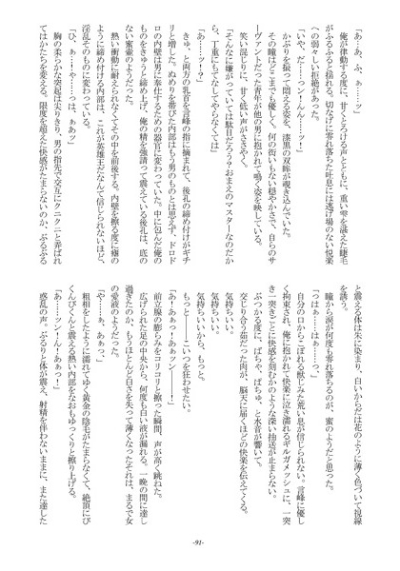 「あ…あ、ふ、ぁ…っ」
俺が律動する度に、甘くとろける声とともに、重い雫を湛えた睫毛
がふるふると揺れる。切なげに零れ落ちた吐息には逃げ場のない悦楽
への弱々しい拒絶があった。
「いや、だ……ン…ん……アッ！」
かぶりを振って悶える姿を、漆黒の双眸が覗き込んでいた。
その瞳はどこまでも優しく、何の街いもない穏やかさで、自らのサ
ーヴァントだった青年が他の男に抱かれて鳴く姿を映している。
笑い混じりに、甘く低い声がささやく。
「そんなに嫌がっていては駄目だろう？おまえのマスターなのだか
ら、丁重にもてなしてやらなくては」
「あ……ッ…！？」
きゅ、と両方の乳首を言峰の指に摘まれて、後孔の締め付けがギチ
リと増した。ぬめりを帯びた内部はもう男のものとは思えず、ドロド
ロの内壁は男に奉仕するための器官に変わっていた。中に包んだ俺の
ものをきゅうと締め上げ、俺の精を強請って震えている後孔は、底の
ない蜜壷のようだった。
熱い衝動に耐えきれなくてその中を前後する。内壁を擦る度に痛の
ように締め付ける内部は、これが英雄王だなんて信じられないほど、
淫乱そのものに変わっている。
「ひ、ぁ……ぁ……や……っは、ぁあッ」
胸の柔らかな突起は尖りきり、男の指先で交互にクニクニと弄ばれ
てはかたちを変える。限度を超えた快感がたまらないのか、ぶるぶる
と震える体は朱に染まり、白いからだは花のように薄く色づいて視線
を誘う。
瞳から涙が何度も零れ落ちるのが、蜜のようだと思った。
「つはぁ……はぁ……っ」
自分の口からこぼれる獣じみた荒い息が信じられない。言峰に優し
く拘束され、俺に抱かれて快楽に泣き濡れるギルガメッシュに、一突
き一突きごとに快感を刻むかのような深い抽送が止まらない。
ぶつかる度に、ぱちゃ、ぱちゅ、と水音が響いて。
交じり合う茹だった肉が、脳天に届くほどの快楽を伝えてくる。
気持ちいい。
気持ちいいから、もっと。
もっと――こいつを狂わせたい。
「あ…あぁっ…あぁッン――！」
前立腺の膨らみをコリコリと擦った瞬間、声が高く跳ねた。
広げられた足の中央から、何度も白い液が漏れる。一晩の間に達し
過ぎたのか、もうほとんど白さを失って薄くなったそれは、まるで女
の愛液のようだった。
「や……ぁ、あぁっ」
粗相をしたように濡れてゆく黄金の陰毛がたまらなくて、絶頂にび
くんびくんと震える熱い内部をなおもゆっくりと擦り上げる。
「あ……ン…ん…あぁっ！」
惑乱の声。ぶるりと体が震え、射精を伴わないままに、また達した
-91-